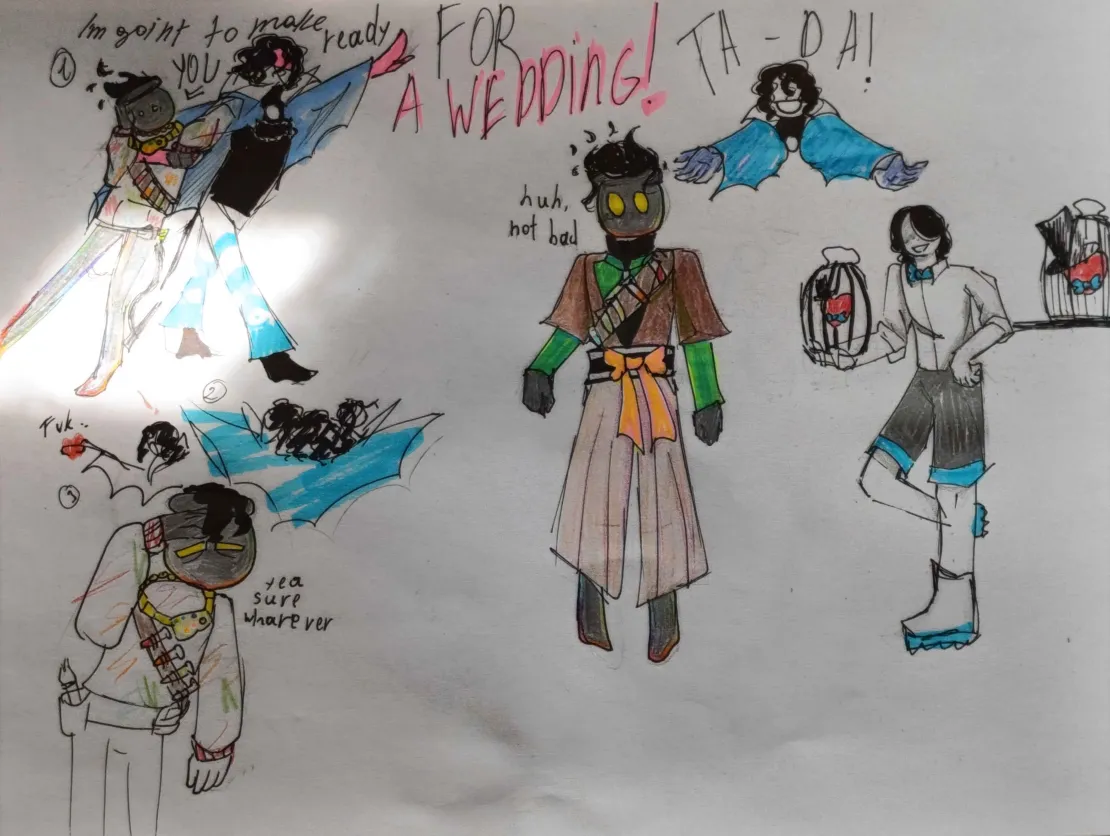 I'm goint to make
ready
YOU
FOR
A WEDDING!
TA-DA!
1
huh,
not bad
2
Fuk..
3
yea
sure
wharever